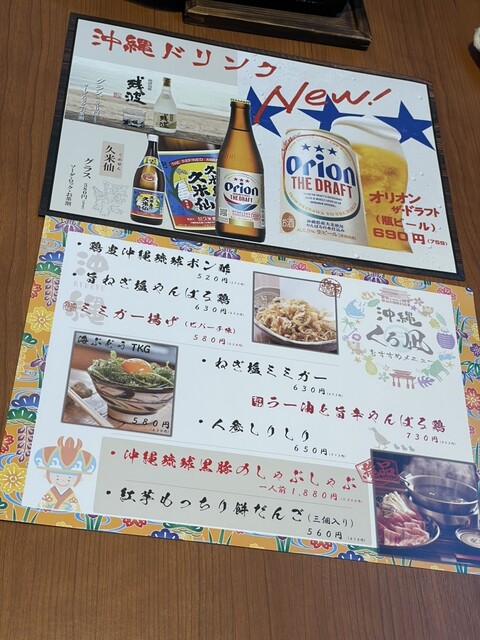 沖縄ドリンク
New!
残波
久米仙
グラス
久米仙
THE REFINED
Orion
Orion
THE DRAFT
オリオン
ザ・ドラフト
(瓶ビール)
690円(759)
・鶏皮沖縄琉球ポン酢
520円
・旨ねぎ塩めんばろ鶏
630円
ミミガー揚げ(ピパーチ味)
580円
海ぶどうTKG
580円
沖縄
くろ凪
おすすめメニュー
・ねぎ塩ミミガー
630円
ラー油と旨辛めんばろ鶏
730円
・人参しりしり
650円
・沖縄琉球黒豚のしゃぶしゃぶ
一人前1,880円
・紅芋もっちり餅だんご(三個入り)
560円